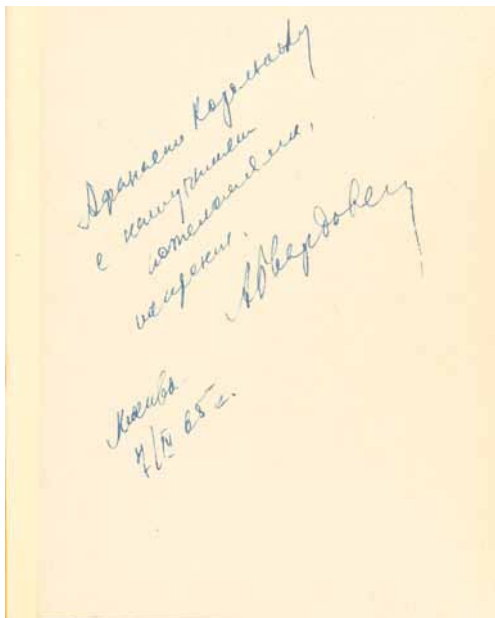 Афанасию Козловскому
с наилучшими
пожеланиями,
искренне.
А Твердовец
Москва
7/IV 65 г.